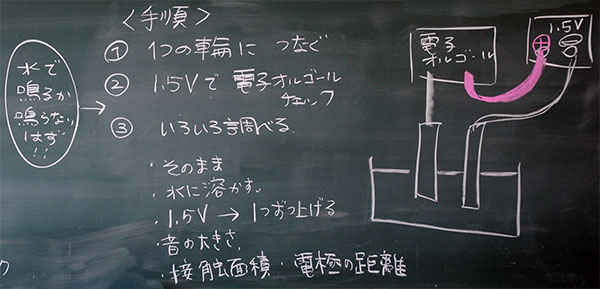 <手順>
① 1つの輪に つなぐ
② 1.5Vで 電子オルゴール
チェック
③ いろいろ調べる
・そのまま
・水に溶かす。
・1.5V → 1つずつ上げる
・音の大きさ
・接触面積・電極の距離
水で
鳴るか
鳴らない
はず
!!
電子
オルゴール
1.5V
+